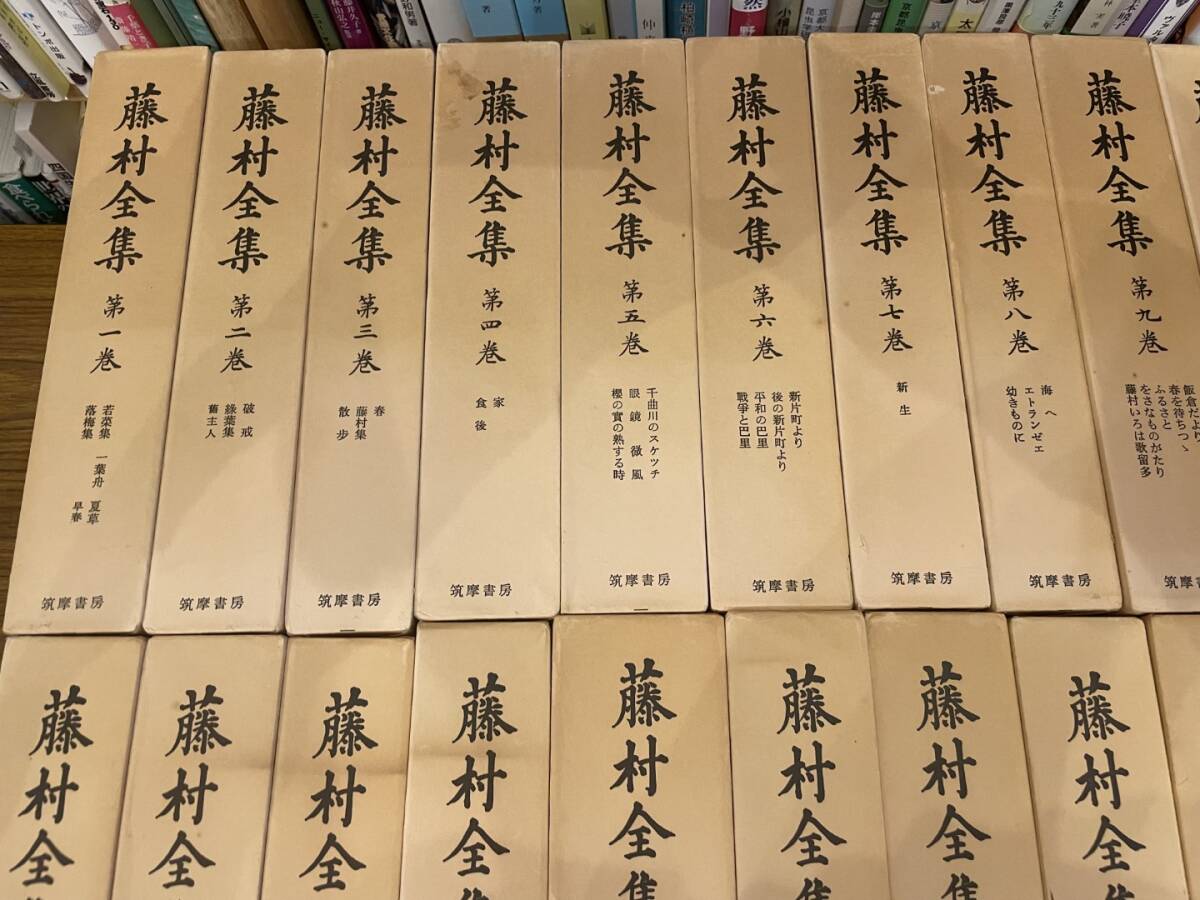 藤村全集
第一巻
若菜集 一葉舟 夏草
落梅集 早春
筑摩書房
藤村全集
第二巻
破戒
緑葉集
舊主人
筑摩書房
藤村全集
第三巻
春
藤村集
散步
筑摩書房
藤村全集
第四巻
家
食後
筑摩書房
藤村全集
第五巻
千曲川のスケッチ
眼鏡 微風
櫻の實の熟する時
筑摩書房
藤村全集
第六巻
新片町より
後の新片町より
平和の巴里
戰爭と巴里
筑摩書房
藤村全集
第七巻
新生
筑摩書房
藤村全集
第八巻
海へ
エトランゼエ
幼きものに
筑摩書房
藤村全集
第九巻
飯倉だより
春を待ちつゝ
ふるさと
をさなものがたり
藤村いろは歌留多
筑摩書房
藤村全
藤村全
藤村全
藤村全集
藤村全集
藤村全集
藤村全集
藤村全集